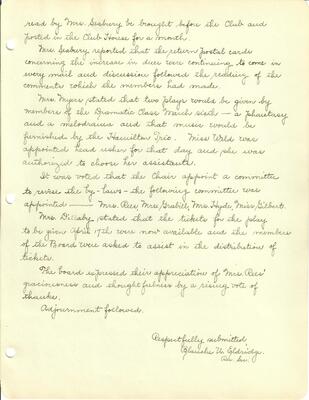 read by Mrs. Seabury be brought before the Club and
posted in the Club House for a month.
Mrs. Seabury reported that the return postal cards
concerning the increase in dues were continuing to come in
every mail and discussion followed the reading of the
comments which the members had made.
Mrs. Myers stated that two plays would be given by
members of the Dramatic Class March sixth — a phantasy
and a melodrama and that music would be
furnished by the Hamilton Trio. Miss Wild was
appointed head usher for that day and she was
authorized to choose her assistants.
It was voted that the chair appoint a committee
to revise the by-laws — the following committee was
appointed — Mrs. Rees, Mrs. Grabill, Mrs. Hyde, Miss Gilbert.
Mrs. Dillaby stated that the tickets for the play
to be given April 17th were now available and the members
of the Board were asked to assist in the distribution of
tickets.
The board expressed their appreciation of Mrs. Rees'
graciousness and thoughtfulness by a rising vote of
thanks.
Adjournment followed.
Respectfully submitted
Blanche W. Eldridge
Rec. Sec.